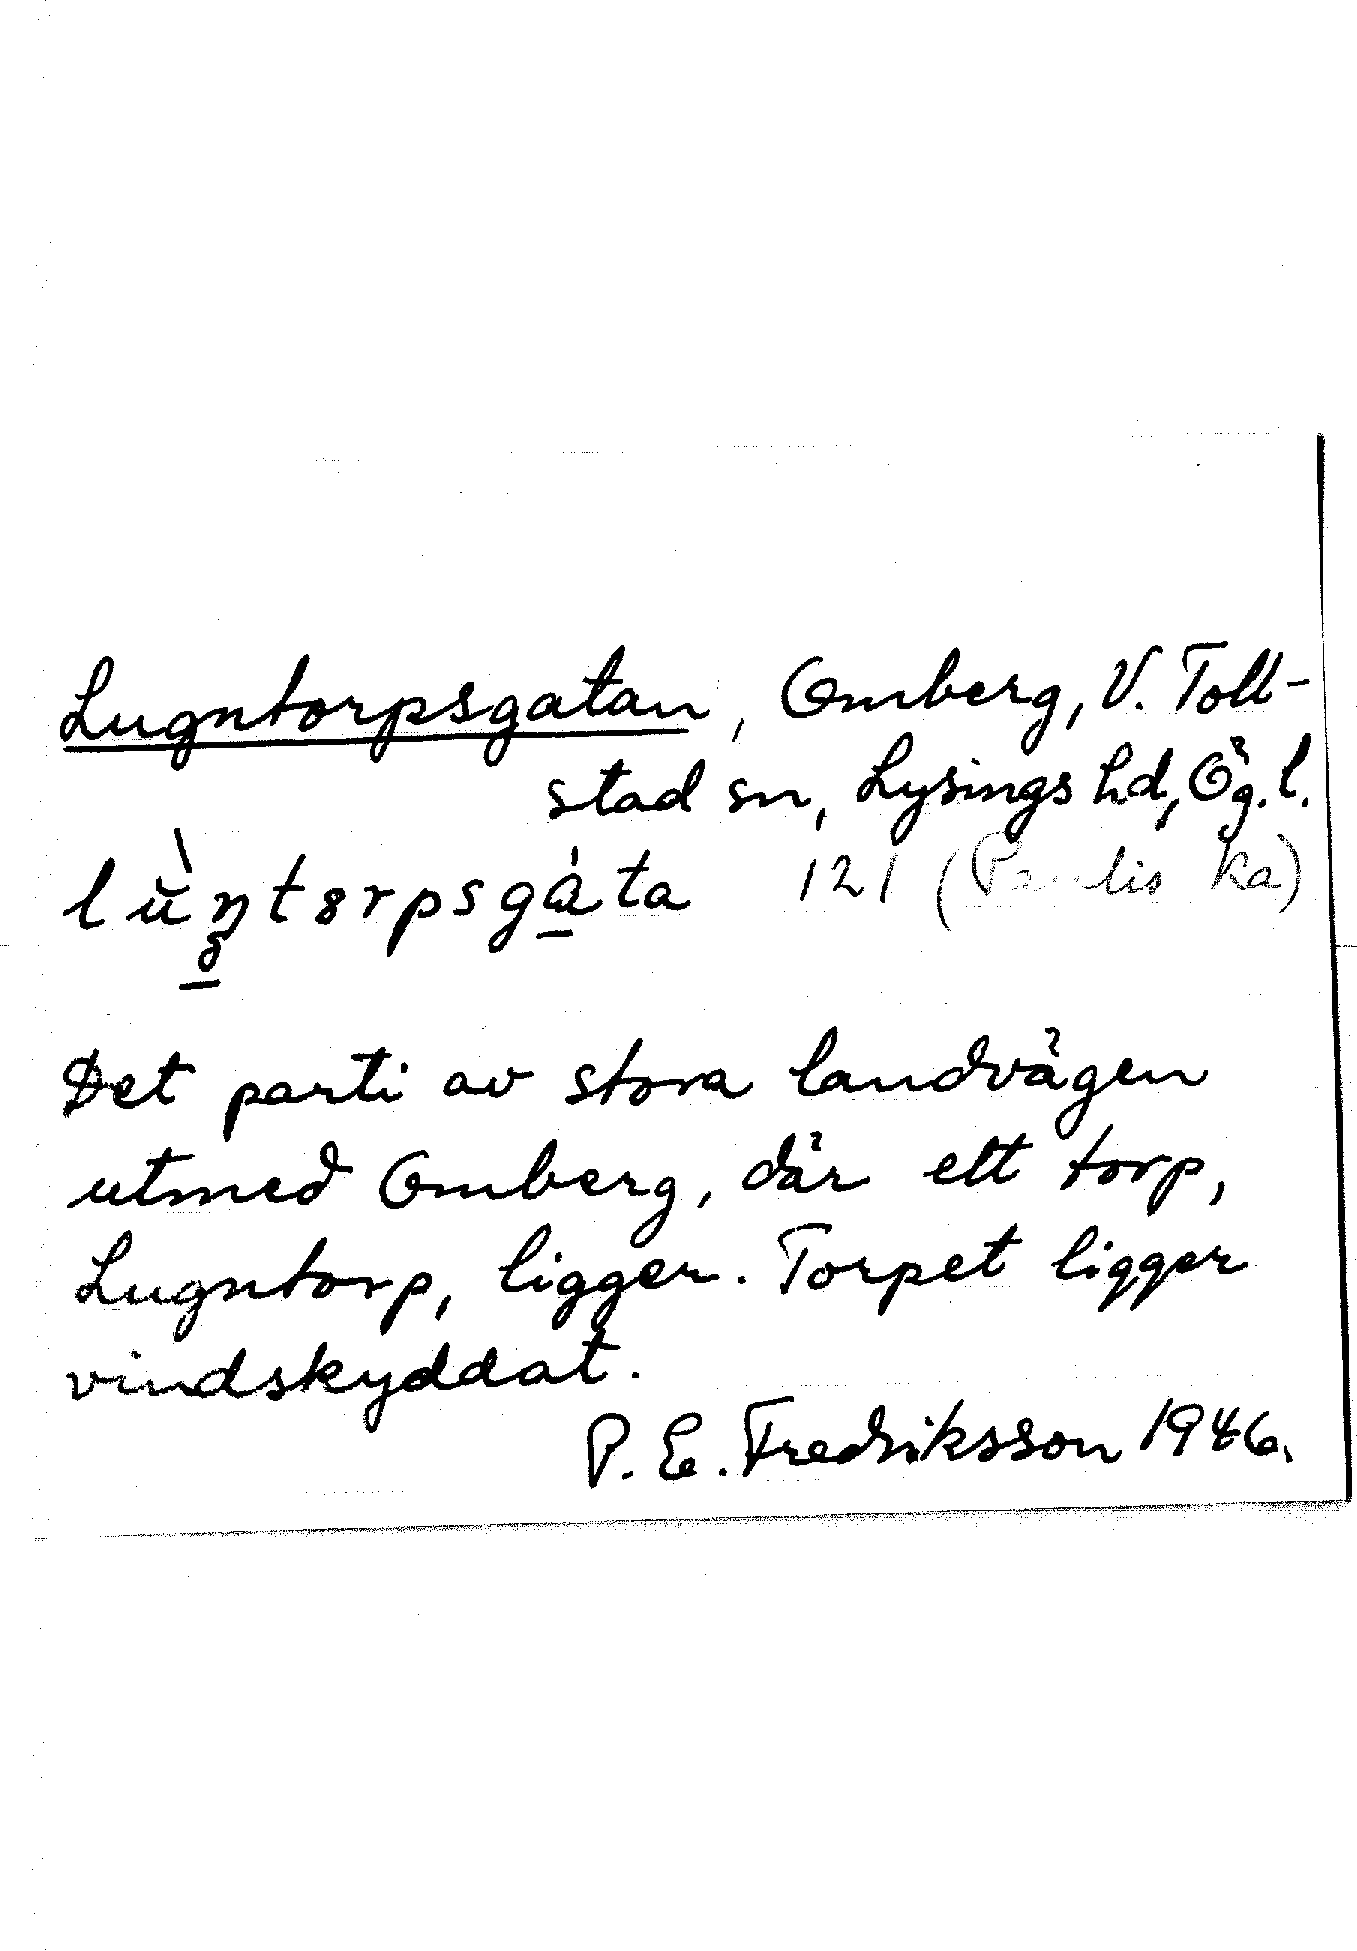 Lugntorpsgatan, Omberg, V. Toll-
stad sn, Lysings hd, Ög. l.
lùŋtɞrpsgáta 121 (Paulis ka)
Det parti av stora landvägen
utmed Omberg, där ett torp,
Lugntorp, ligger. Torpet ligger
vindskyddat.
P. E. Fredriksson 1946.